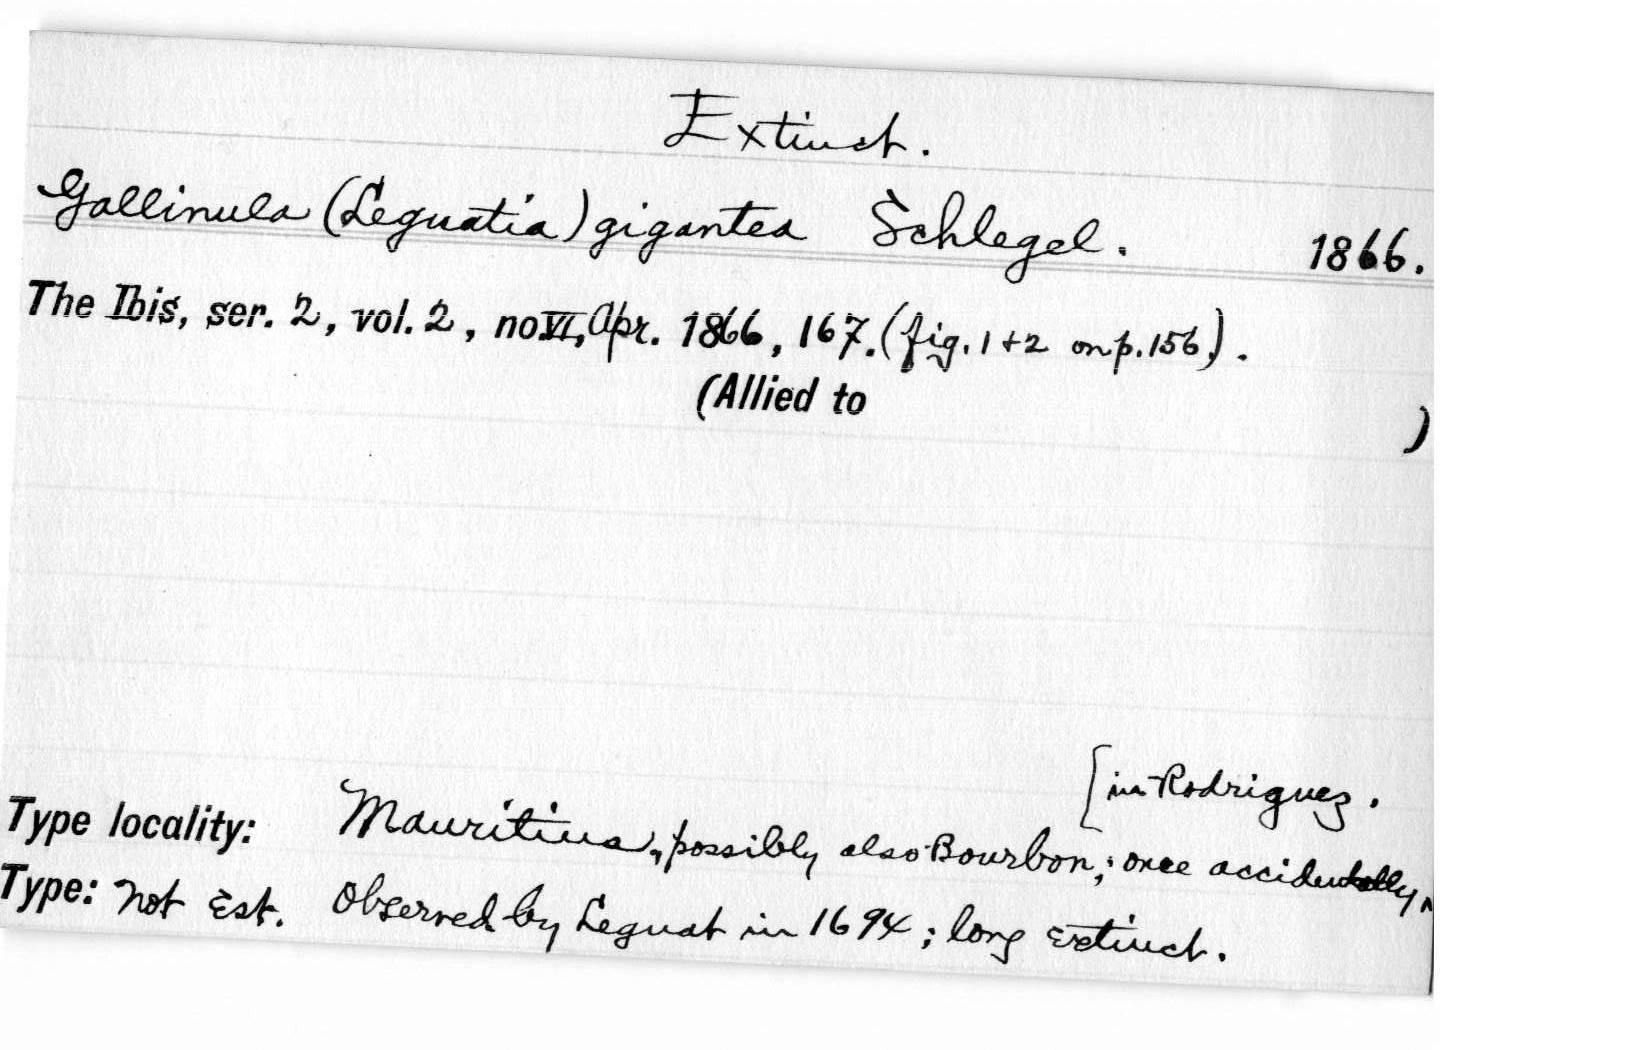 Extinct.
Gallinula (Leguatia) gigantea Schlegel. 1866.
The Ibis, ser. 2, vol. 2, no VI, Apr. 1866, 167. (fig. 1 + 2 on p. 156).
(Allied to )
[in Rodriguez.
Type locality: Mauritius, possibly also Bourbon; once accidentally
Type: not Est. Observed by Leguat in 1694; long extinct.